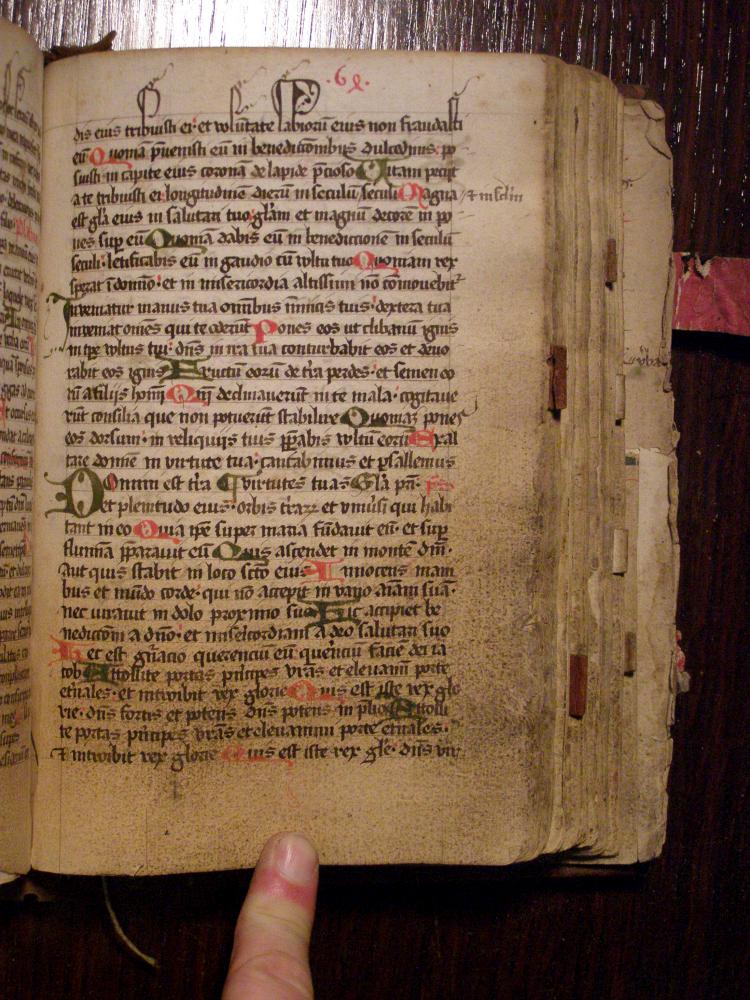 .6 .
dis eius tribuisti ei· et volūtate labiorū eius non fraudasti
eū Quoniā p̄uenisti eū in benedictionibus dulcedinis· po
suisti in capite eius coronā de lapide p̄cioso Vitam peciit
a te tribuisti ei longitudinē dierū in seculū seculi Magna
est gl̄a eius in salutari tuo gl̄am et magnū decorē in po
nes sup eū Quoniā dabis eū in benediccionē in seculū
seculi· letificabis eū in gaudio cū vltu tuo Quoniam rex
sperat ī domīo· et in misericordia altissimi nō cōmouebit̄
Inveniatur manus tua omnibus inimicis tuis· dextera tua
inveniat omēs qui te oderūt Pones eos ut clibanū ignis
in tpe vltus tui· dn̄s in ira sua conturbabit eos et deuo
rabit eos ignis Fructū eorū de tr̄a perdes· et semen eo
rū a filijs homī Qm̄ declinauerūt in te mala· cogitaue
rūt consilia que non potuerūt stabilire Quoniaz pones
eos dorsum· in reliquijs tuis p̄parabis vltū eorū Exal
tare domīe in virtute tua· cantabimus et psallemus
Domini est tr̄a virtutes tuas Gl̄a pr̄i· ps
et plenitudo eius· orbis tr̄arz et vniūsi qui habi
tant in eo Quia ip̄e super maria fūdauit eū· et sup
flumīa p̄parauit eū Quis ascendet in montē dn̄i·
Aut quis stabit in loco sc̄to eius Innocens mani
bus et mūdo corde· qui nō accepit in vano aīam suā·
nec iurauit in dolo proximo suo Hic accipiet be
nediccōm a dn̄o· et misericordiam a deo salutari suo
Hec est gn̄acio querenciū eū querēciū facie dei ia
cob Attollite portas prīcipes vr̄as et eleuamī porte
et̄nales· et introibit rex glorie Quis est iste rex glo
rie· dn̄s fortis et potens dn̄s potens in p̄lio Attolli
te portas prīcipes vr̄as et eleuamini porte et̄nales·
et introibit rex glorie Quis est iste rex gl̄e· dn̄s vir